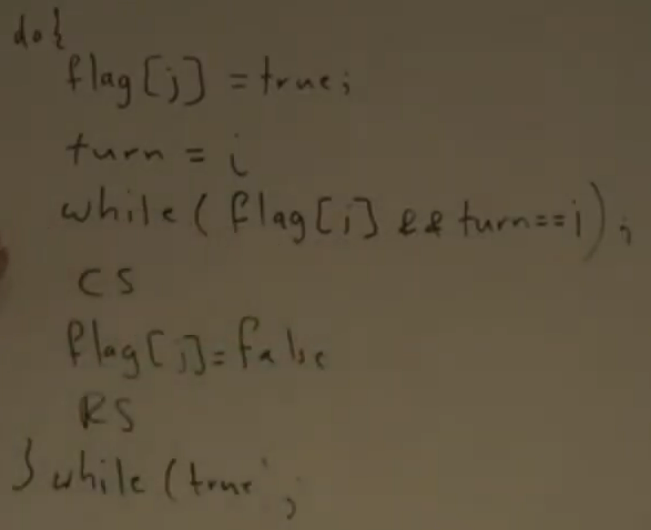 do{
flag[j] = true;
turn = i
while( flag[i] && turn==i);
CS
flag[j]=false
RS
} while (true ;